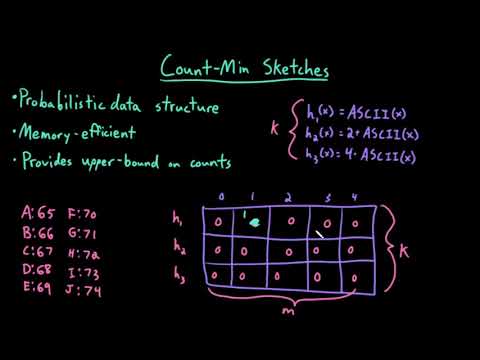 Count-Min Sketches
• Probabilistic data structure
• Memory-efficient
• Provides upper-bound on counts
K
h₁(x) = ASCII(x)
h₂(x) = 2 + ASCII(x)
h₃(x) = 4 · ASCII(x)
A:65 F:70
B:66 G:71
C:67 H:72
D:68 I:73
E:69 J:74
0 1 2 3 4
h₁ 0 1 0 0 0
h₂ 0 0 0 0 0
h₃ 0 0 0 0 0
K
m